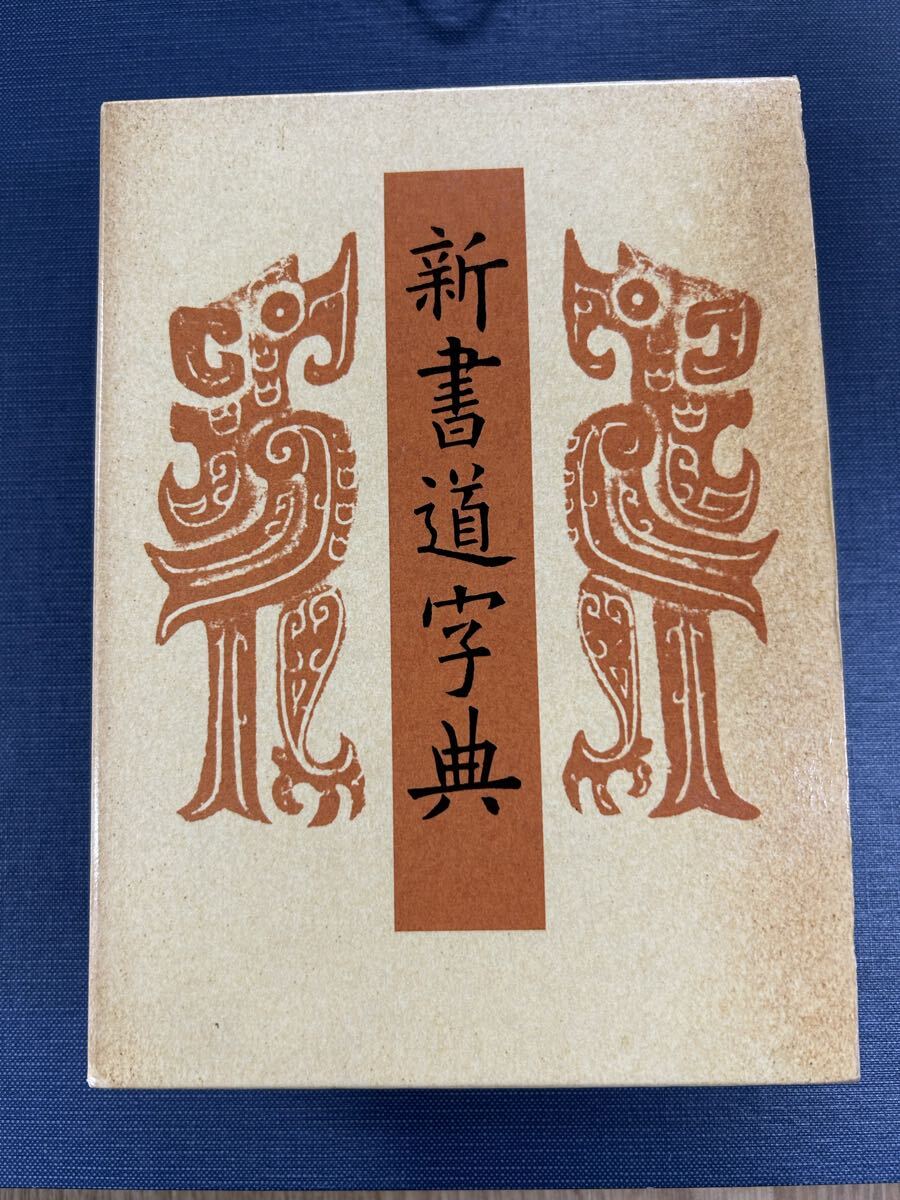 新書道字典